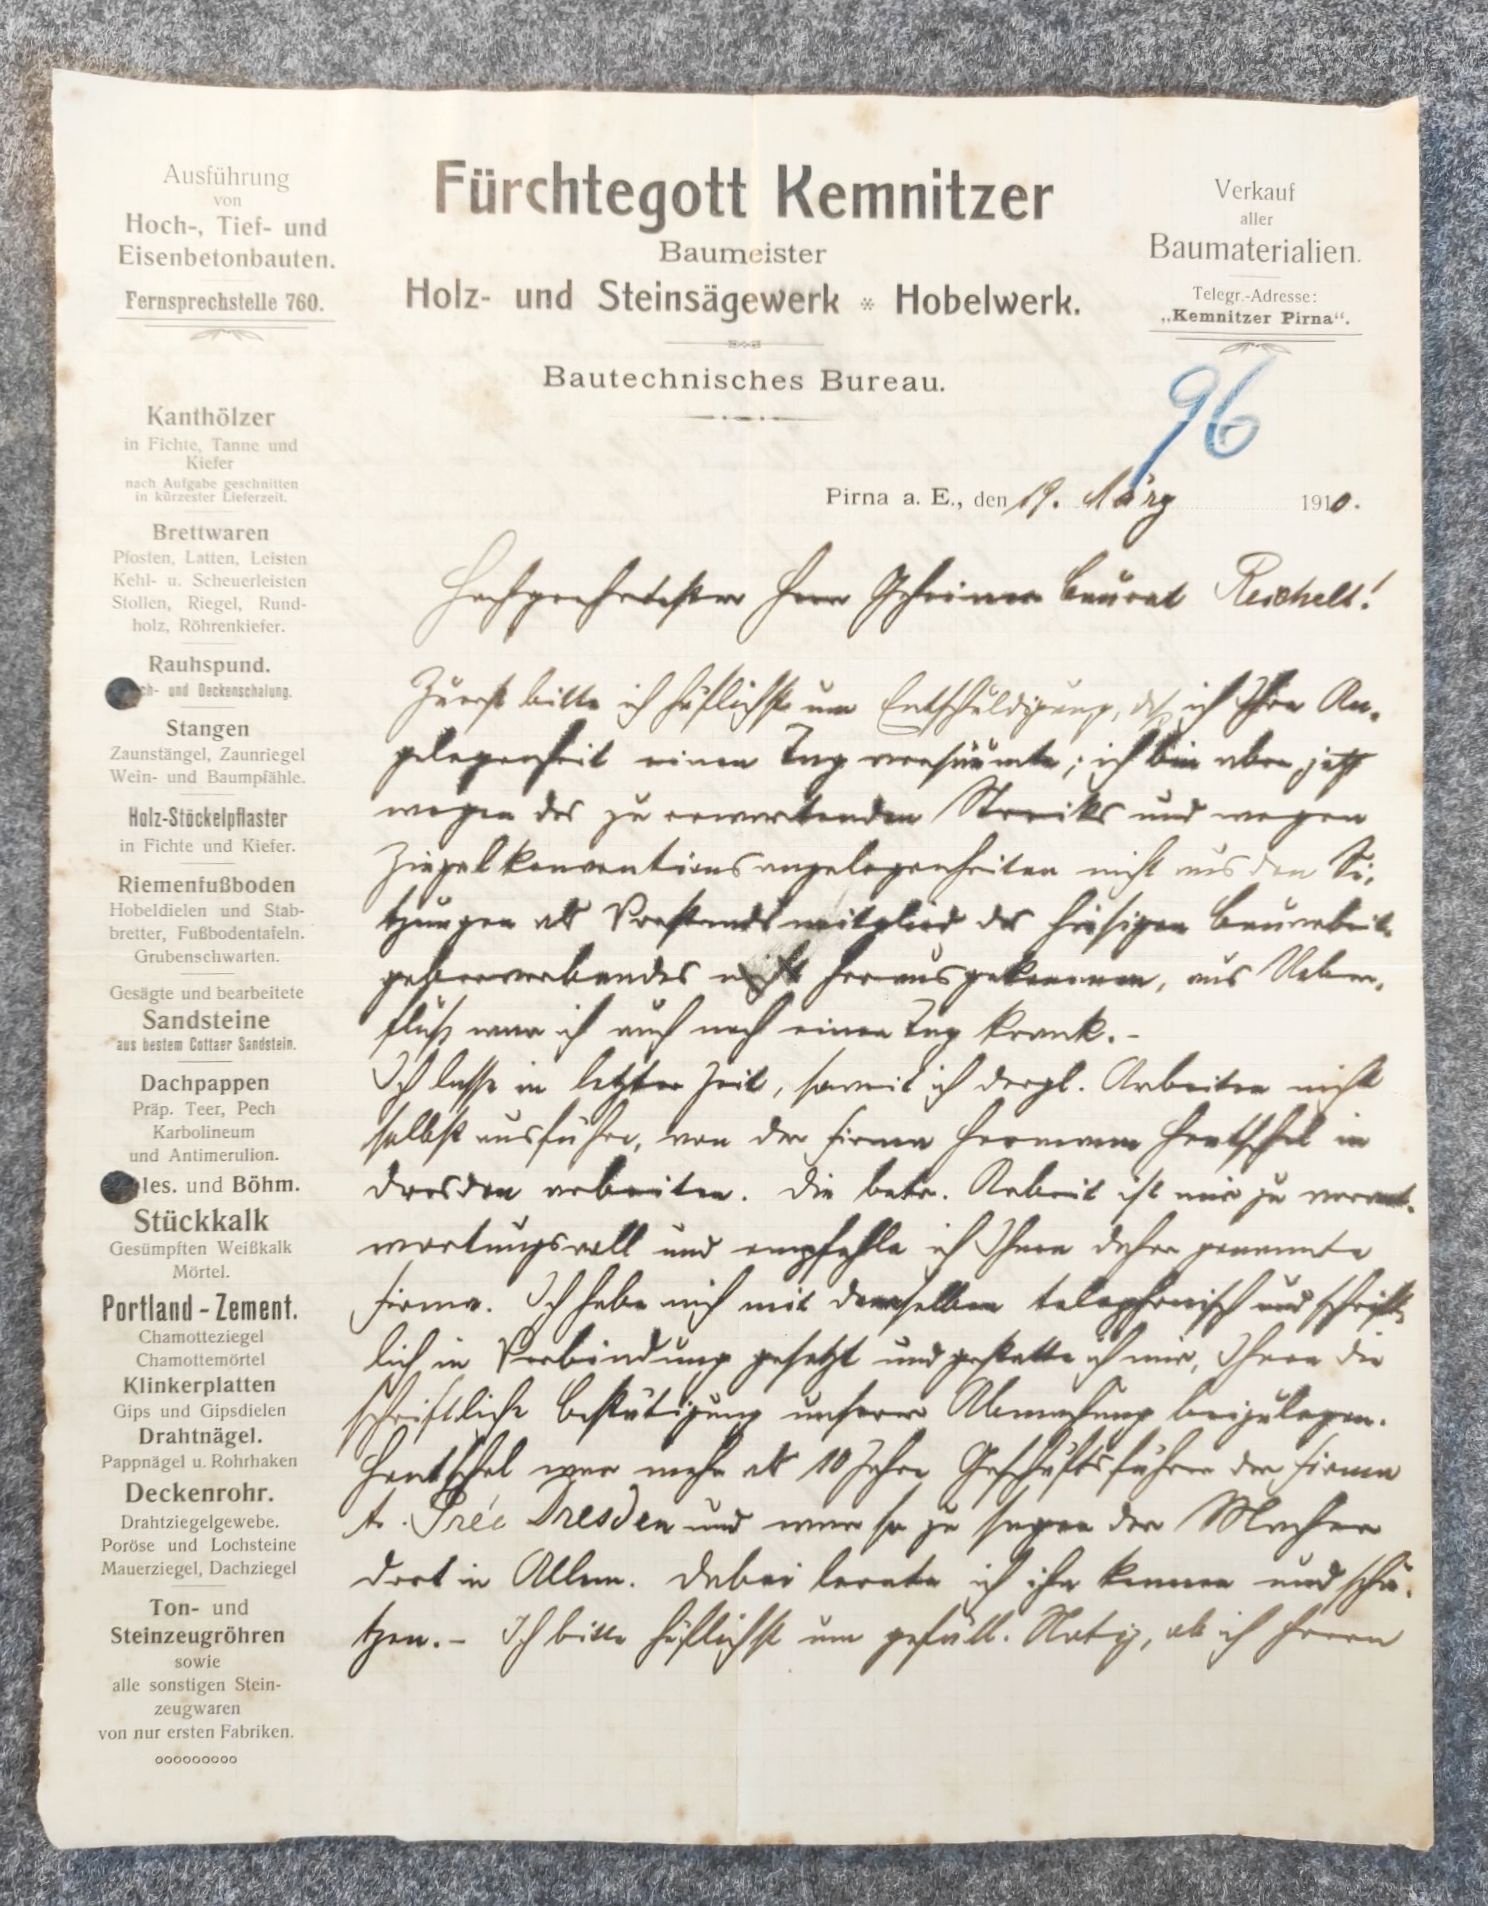 Ausführung
von
Hoch-, Tief- und
Eisenbetonbauten.
Fernsprechstelle 760.
Fürchtegott Kemnitzer
Baumeister
Holz- und Steinsägewerk * Hobelwerk.
Bautechnisches Bureau.
Verkauf
aller
Baumaterialien.
Telegr.-Adresse:
„Kemnitzer Pirna“.
96
Pirna a. E., den 19. März 1910.
Kanthölzer
in Fichte, Tanne und
Kiefer
nach Aufgabe geschnitten
in kürzester Lieferzeit.
Brettwaren
Pfosten, Latten, Leisten
Kehl- u. Scheuerleisten
Stollen, Riegel, Rund-
holz, Röhrenkiefer.
Rauhspund.
ch- und Deckenschalung.
Stangen
Zaunstängel, Zaunriegel
Wein- und Baumpfähle.
Holz-Stöckelpflaster
in Fichte und Kiefer.
Riemenfußboden
Hobeldielen und Stab-
bretter, Fußbodentafeln.
Grubenschwarten.
Gesägte und bearbeitete
Sandsteine
aus bestem Cottaer Sandstein.
Dachpappen
Präp. Teer, Pech
Karbolineum
und Antimerulion.
les. und Böhm.
Stückkalk
Gesümpften Weißkalk
Mörtel.
Portland-Zement.
Chamotteziegel
Chamottemörtel
Klinkerplatten
Gips und Gipsdielen
Drahtnägel.
Pappnägel u. Rohrhaken
Deckenrohr.
Drahtziegelgewebe.
Poröse und Lochsteine
Mauerziegel, Dachziegel
Ton- und
Steinzeugröhren
sowie
alle sonstigen Stein-
zeugwaren
von nur ersten Fabriken.
Hochgeehrtester Herr Geheimer Baurat Reichelt!
Zuerst bitte ich höflichst um Entschuldigung, daß ich Ihre An-
gelegenheit einen Tag versäumte; ich bin aber jetzt
wegen des zu erwartenden Streiks und wegen
Ziegelkonventionsangelegenheiten nicht aus den Si-
tzungen als Vorstandsmitglied des hiesigen Bauarbeit-
geberverbandes herausgekommen, aus Ueber-
fluß war ich auch noch einen Tag krank. -
Ich lasse in letzter Zeit, soweit ich dergl. Arbeiten nicht
selbst ausführe, von der Firma Hermann Hentschel in
Dresden arbeiten. Die betr. Arbeit ist mir zu verant-
wortungsvoll und empfehle ich Ihnen daher genannte
Firma. Ich habe mich mit derselben telephonisch und schrift-
lich in Verbindung gesetzt und gestatte ich mir, Ihnen die
schriftliche Bestätigung unserer Abmachung beizulegen.
Hentschel war mehr als 10 Jahre Geschäftsführer der Firma
Prée Dresden und war so zu sagen der Macher
dort in Allem. Dabei lernte ich ihn kennen und schä-
tzen. - Ich bitte höflichst um gefäll. Notiz, ob ich Herrn